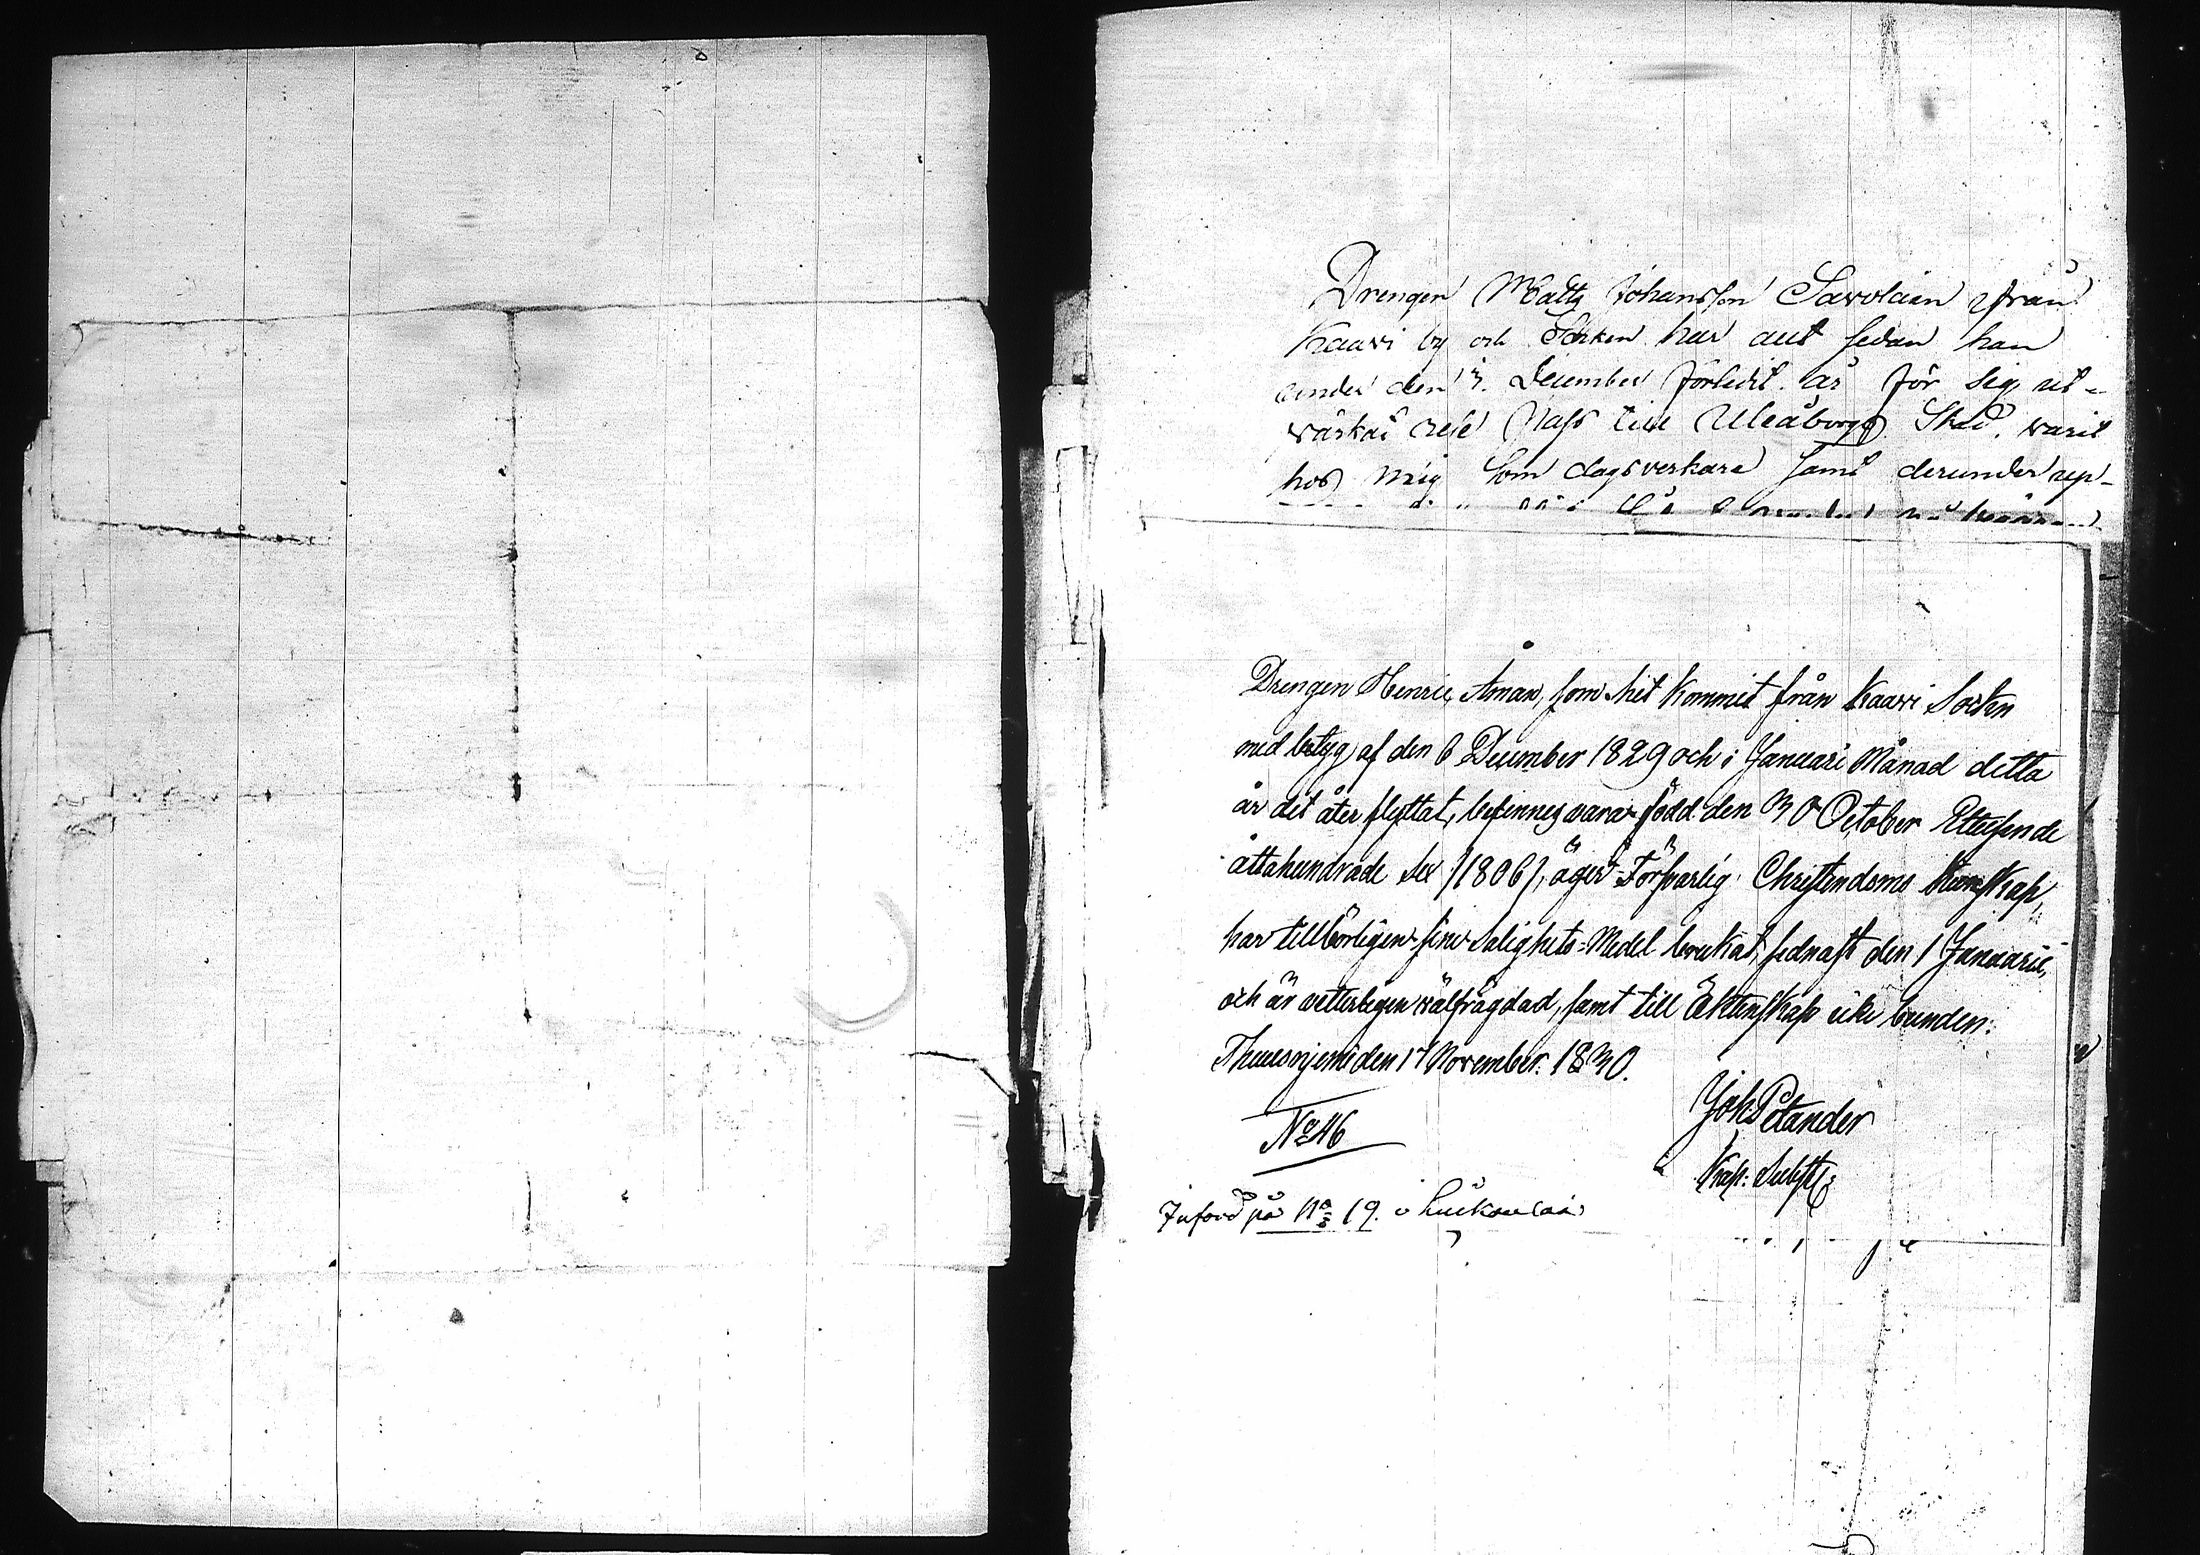 Drengen Matts Johansson Savolain från
Kaavi by och Socken har alt sedan han
under den 3. December förledit. år för sig ut-
värkat rese Pass till Uleåborgs Stad. warit
hos mig som dagsverkare samt derunder upp-
Drengen Henric Åman, som hit kommit från Kaavi Socken
med betyg af den 6 December 1829 och i Januari Månad detta
år dit åter flyttat, befinnes vara född den 30 October Ettusende
åttahundrade sex /1806/, äger Försvarlig Christendoms Kunskap,
har tillbörligen sine Salighets-Medel brukat, sednast den 1 Januarii,
och är vetterligen välfrägdad, samt till Ektenskap icke bunden.
Thuusnjemi den 17 November 1830.
Joh Petander
No 46
Kap: Subst:
Införd på No 19. i